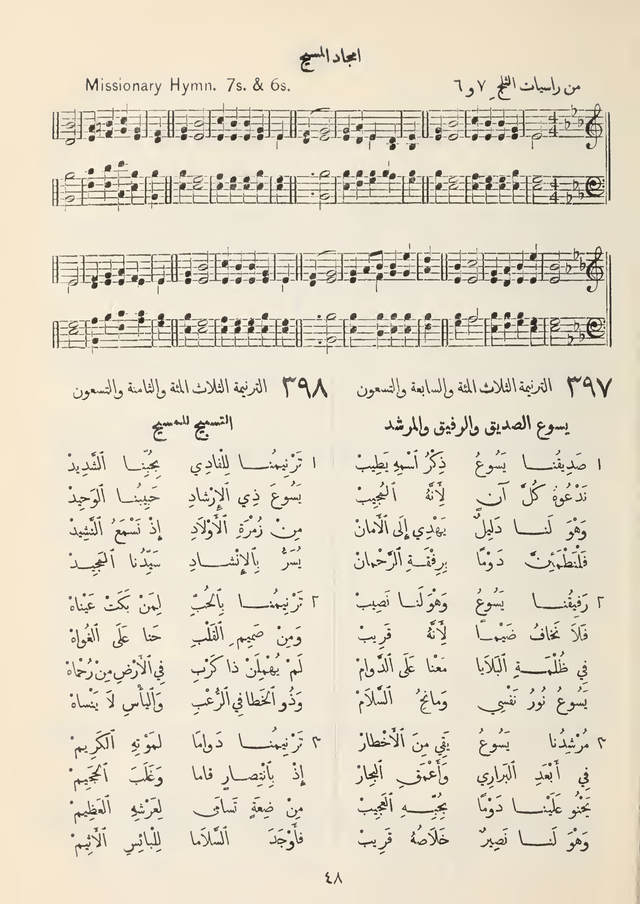 امجاد المسيح
من راسيات الثلج ٧ و ٦
Missionary Hymn. 7s. & 6s.
٣٩٧ الترنيمة الثلاث المئة والسابعة والتسعون
يسوع الصديق والرفيق والمرشد
١ صَدِيقُنَا يَسُوعُ ذِكْرُ ٱسْمِهِ يَطِيبْ
نَدْعُوهُ كُلَّ آنٍ لِأَنَّهُ ٱلْمُجِيبْ
وَهْوَ لَنَا دَلِيلٌ يَهْدِي إِلَى ٱلْأَمَانْ
فَلْنَطْمَئِنَّ دَوْمًا بِرِفْقَةِ ٱلرَّحْمَانْ
٢ رَفِيقُنَا يَسُوعُ وَهْوَ لَنَا نَصِيبْ
فَلَا نَخَافُ ضَيْمًا لِأَنَّهُ قَرِيبْ
فِي ظُلْمَةِ ٱلْبَلَايَا مَعْنَا عَلَى ٱلدَّوَامْ
يَسُوعُ نُورُ نَفْسِي وَمَانِحُ ٱلسَّلَامْ
٣ مُرْشِدُنَا يَسُوعُ يَقِي مِنَ ٱلْأَخْطَارْ
فِي أَبْعَدِ ٱلْبَرَارِي وَأَعْمَقِ ٱلْبِحَارْ
يَحْنُو عَلَيْنَا دَوْمًا بِحُبِّهِ ٱلْعَجِيبْ
وَهْوَ لَنَا نَصِيرٌ خَلَاصُهُ قَرِيبْ
٣٩٨ الترنيمة الثلاث المئة والثامنة والتسعون
التسبيح للمسيح
١ تَرْنِيمُنَا لِلْفَادِي بِحُبِّنَا ٱلشَّدِيدْ
يَسُوعَ ذِي ٱلْإِرْشَادِ حَبِيبُنَا ٱلْوَحِيدْ
مِنْ زُمْرَةِ ٱلْأَوْلَادِ إِذْ تَسْمَعُ ٱلنَّشِيدْ
يُسَرُّ بِٱلْإِنْشَادِ سَيِّدُنَا ٱلْمَجِيدْ
٢ تَرْنِيمُنَا بِٱلْحُبِّ لِمَنْ بَكَتْ عَيْنَاهْ
وَمِنْ صَمِيمِ ٱلْقَلْبِ حَنَا عَلَى ٱلْغُوَاهْ
لَمْ يُهْمِلَنْ ذَا كَرْبِ فِي ٱلْأَرْضِ مِنْ رُحْمَاهْ
وَذُو ٱلْخَطَا فِي ٱلرُّعْبِ وَٱلْبَأْسِ لَا يَنْسَاهْ
٣ تَرْنِيمُنَا دَوَامًا لِمَوْتِهِ ٱلْكَرِيمْ
إِذْ بِٱنْتِصَارٍ قَامَا وَغَلَبَ ٱلْجَحِيمْ
مِنْ ضِعَةٍ تَسَامَى لِعَرْشِهِ ٱلْعَظِيمْ
فَأَوْجَدَ ٱلسَّلَامَا لِلْبَائِسِ ٱلْأَثِيمْ
٤٨